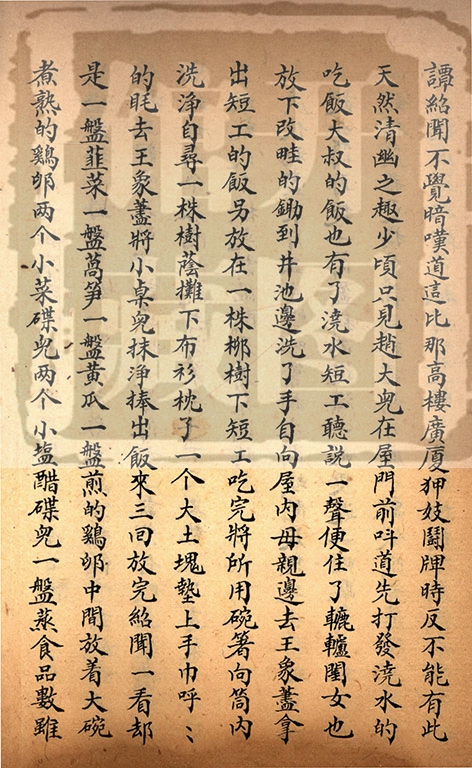 譚紹聞不覺暗嘆道這比那高樓廣厦狎妓鬪牌時反不能有此
天然清幽之趣少頃只見趙大兒在屋門前呌道先打發澆水的
吃飯大叔的飯也有了澆水短工聽説一聲便住了轆轤閨女也
放下改畦的鋤到井池邊洗了手自向屋内母親邊去王象藎拿
出短工的飯另放在一株栁樹下短工吃完將所用碗箸向筒内
洗淨自尋一株樹蔭攤下布衫枕了一个大土塊墊上手巾呼〻
的眊去王象藎將小桌兒抹淨捧出飯來三回放完紹聞一看却
是一盤韮菜一盤萵笋一盤黄瓜一盤煎的鷄卵中間放着大碗
煮熟的鷄卵两个小菜碟兒两个小塩醋碟兒一盤蒸食品數雖